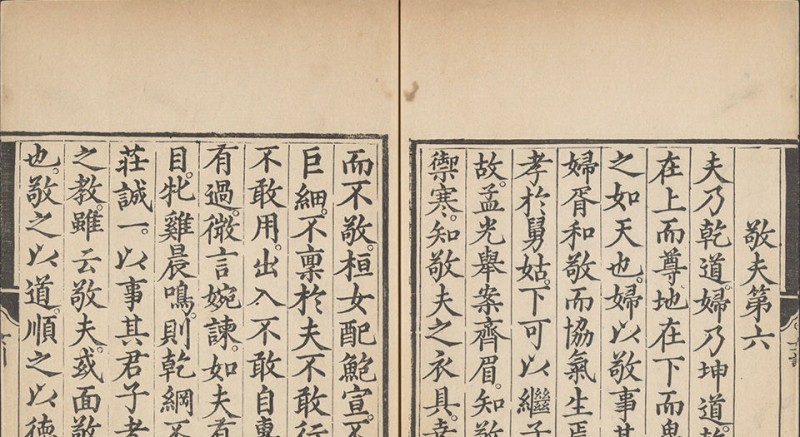 敬夫第六
夫乃乾道。婦乃坤道。
在上而尊。地在下而卑
之如天也。婦以敬事其
婦胥和敬而協氣生焉
孝於舅姑。下可以繼子
故。孟光舉案齊眉。知敬
禦寒。知敬夫之衣具。幸
而不敬。桓女配鮑宣。不
巨細。不稟於夫不敢行
不敢用。出入不敢自專
有過。微言婉諫。如夫有
目。牝雞晨鳴。則乾綱不
莊誠一。以事其君子者
之教。雖云敬夫。或面敬
也。敬之以道。順之以德